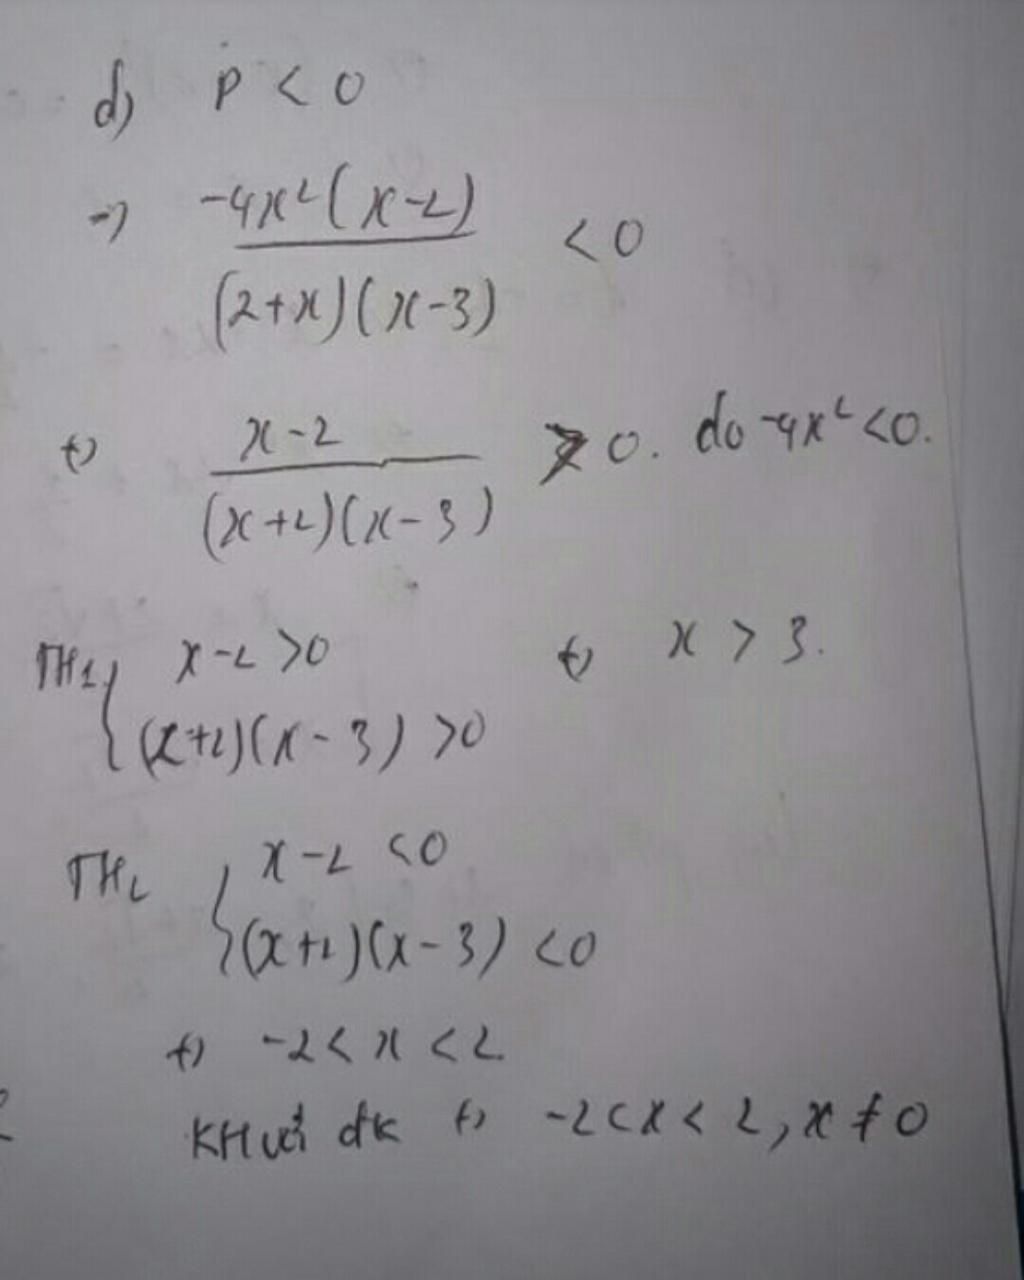 d) P < 0
=> -4x²(x-2) / (2+x)(x-3) < 0
<=> x-2 / (x+2)(x-3) > 0. do -4x² < 0.
TH1 { x-2 > 0 <=> x > 3.
(x+2)(x-3) > 0
TH2 { x-2 < 0
(x+2)(x-3) < 0
<=> -2 < x < 2
KH với đk <=> -2 < x < 2, x ≠ 0